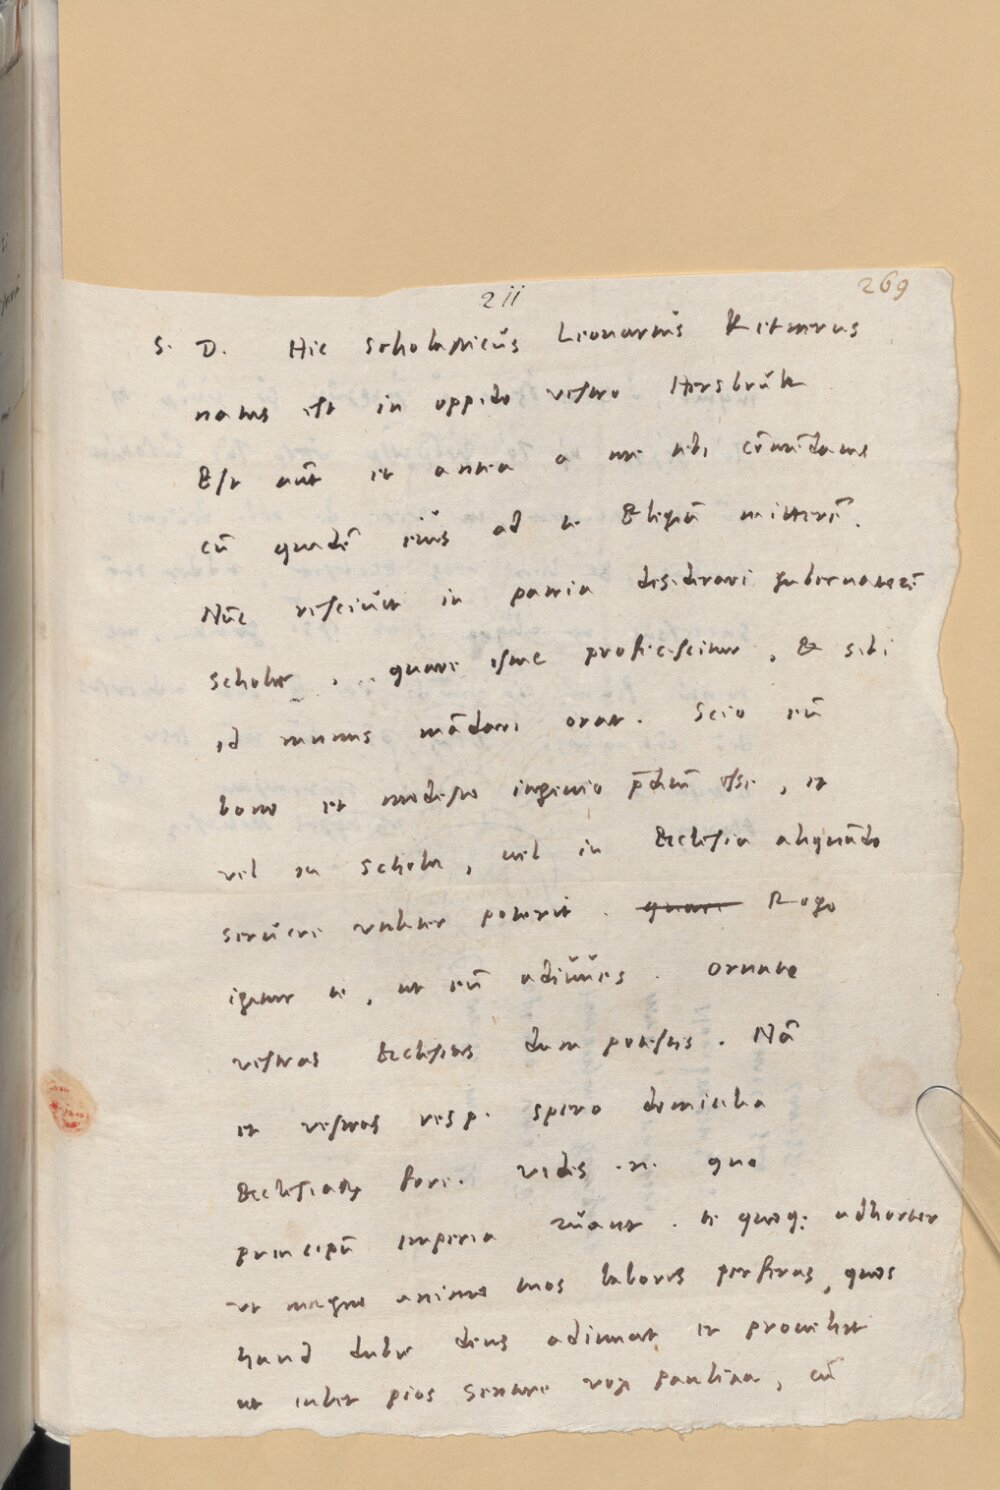 211
269
S. D. Hic scholasticus Leonartus Ketnerus
natus est in oppido vestro Hersbruk
Est aūt et antea a me tibi cōmēdatus
cū quadē eius ad te Elegiā mitterē.
Nūc resciuit in patria desiderari gubernatorē
scholae, quare istuc proficiscitur, & sibi
id munus mādari orat. Scio eū
bono et modesto ingenio p̄ditū esse, et
vel in schola, vel in Ecclesia aliquādo
seruire utiliter poterit. quare Rogo
igitur te, ut eū adiuues. Ornate
vestras Ecclesias dum potestis. Nā
et vestras resp. spero domicilia
Ecclesiaꝝ fore. vides .n. quo
principū imperia ruant. te quoq: adhortor
ut magno animo tuos labores perferas, quos
haud dubie deus adiuuat et prouehit
ut iubet pios sentire vox paulina, cū